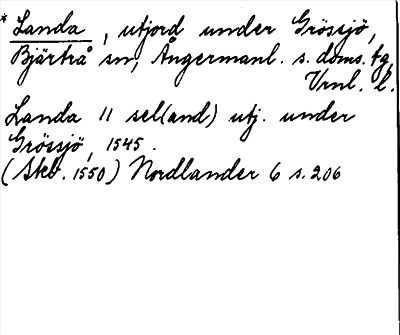 * Landa, utjord under Grössjö,
Bjärtrå sn, Ångermanl. s. doms. tg,
Vrnl. l.
Landa 11 sel(and) utj. under
Grössjö, 1545.
(Skb. 1550) Nordlander 6 s. 206